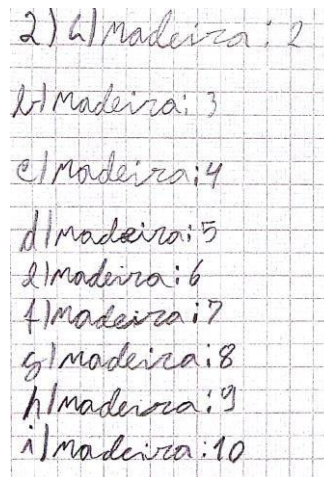 2) a) madeira: 2
b) madeira: 3
c) madeira: 4
d) madeira: 5
e) madeira: 6
f) madeira: 7
g) madeira: 8
h) madeira: 9
i) madeira: 10